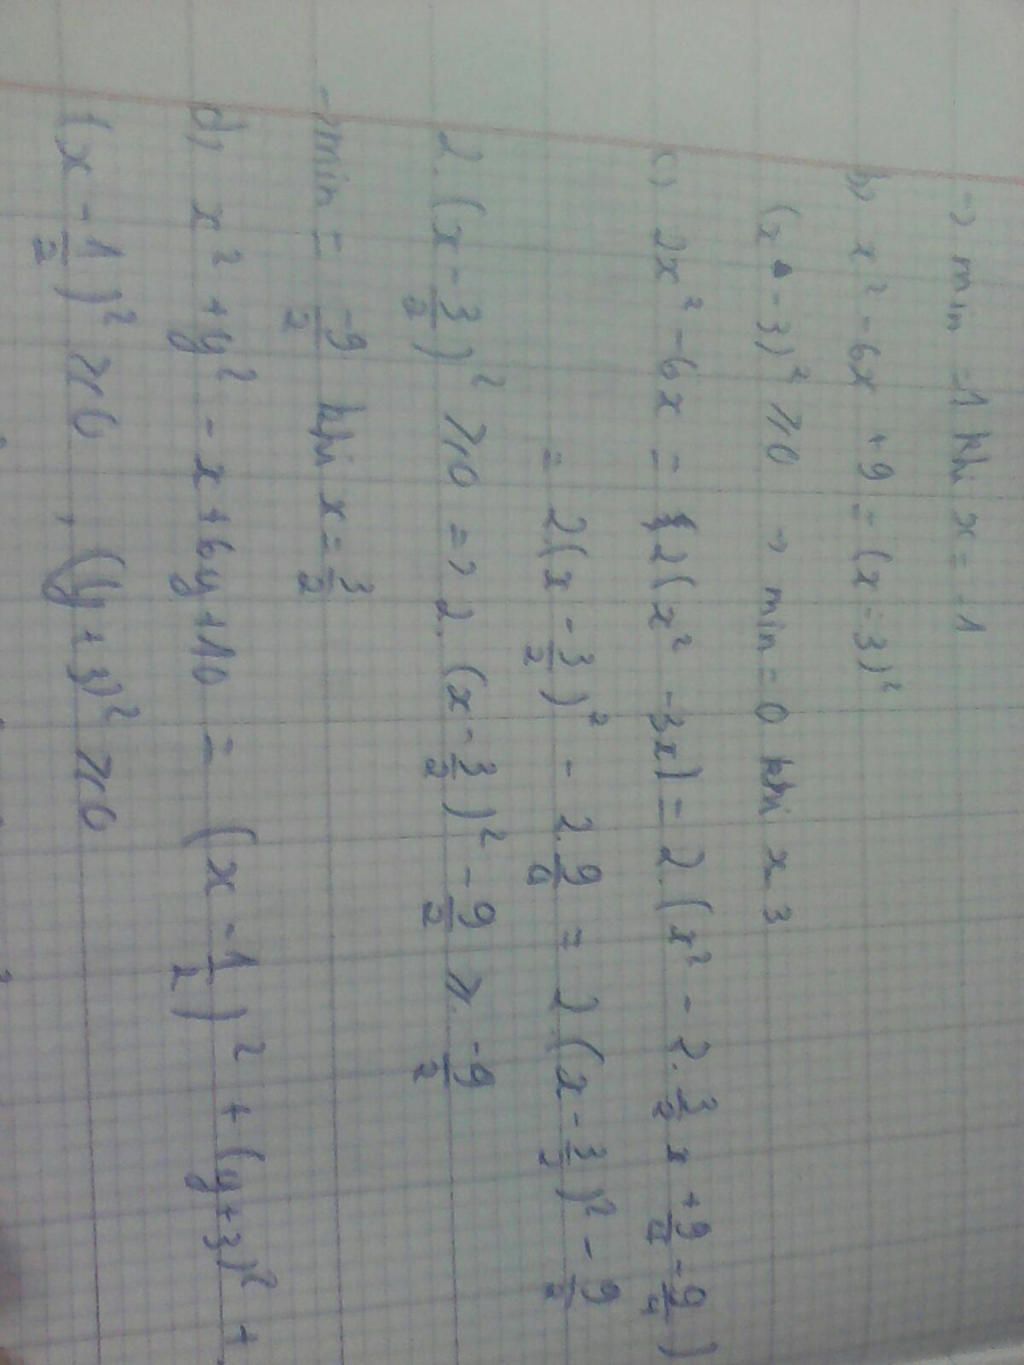 -> min = -1 khi x = -1
b) x² - 6x + 9 = (x - 3)²
(x - 3)² ≥ 0 -> min = 0 khi x = 3
c) 2x² - 6x = 2(x² - 3x) = 2.(x² - 2.3/2 x + 9/4 - 9/4)
= 2(x - 3/2)² - 2.9/4 = 2(x - 3/2)² - 9/2
2.(x - 3/2)² ≥ 0 => 2.(x - 3/2)² - 9/2 ≥ -9/2
-> min = -9/2 khi x = 3/2
d) x² + y² - x + 6y + 10 = (x - 1/2)² + (y + 3)² +
(x - 1/2)² ≥ 0, (y + 3)² ≥ 0